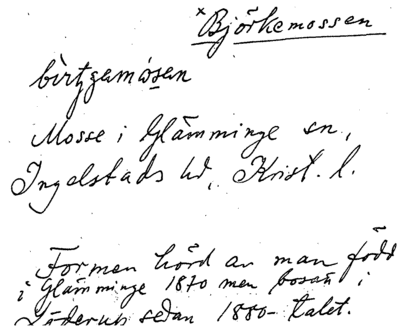 × Björkemossen
bìrtʒamósan
Mosse i Glämminge sn,
Ingelstads hd, Krist. l.
Formen hörd av man född
i Glämminge 1870 men bosatt i
Löderup sedan 1880-talet.